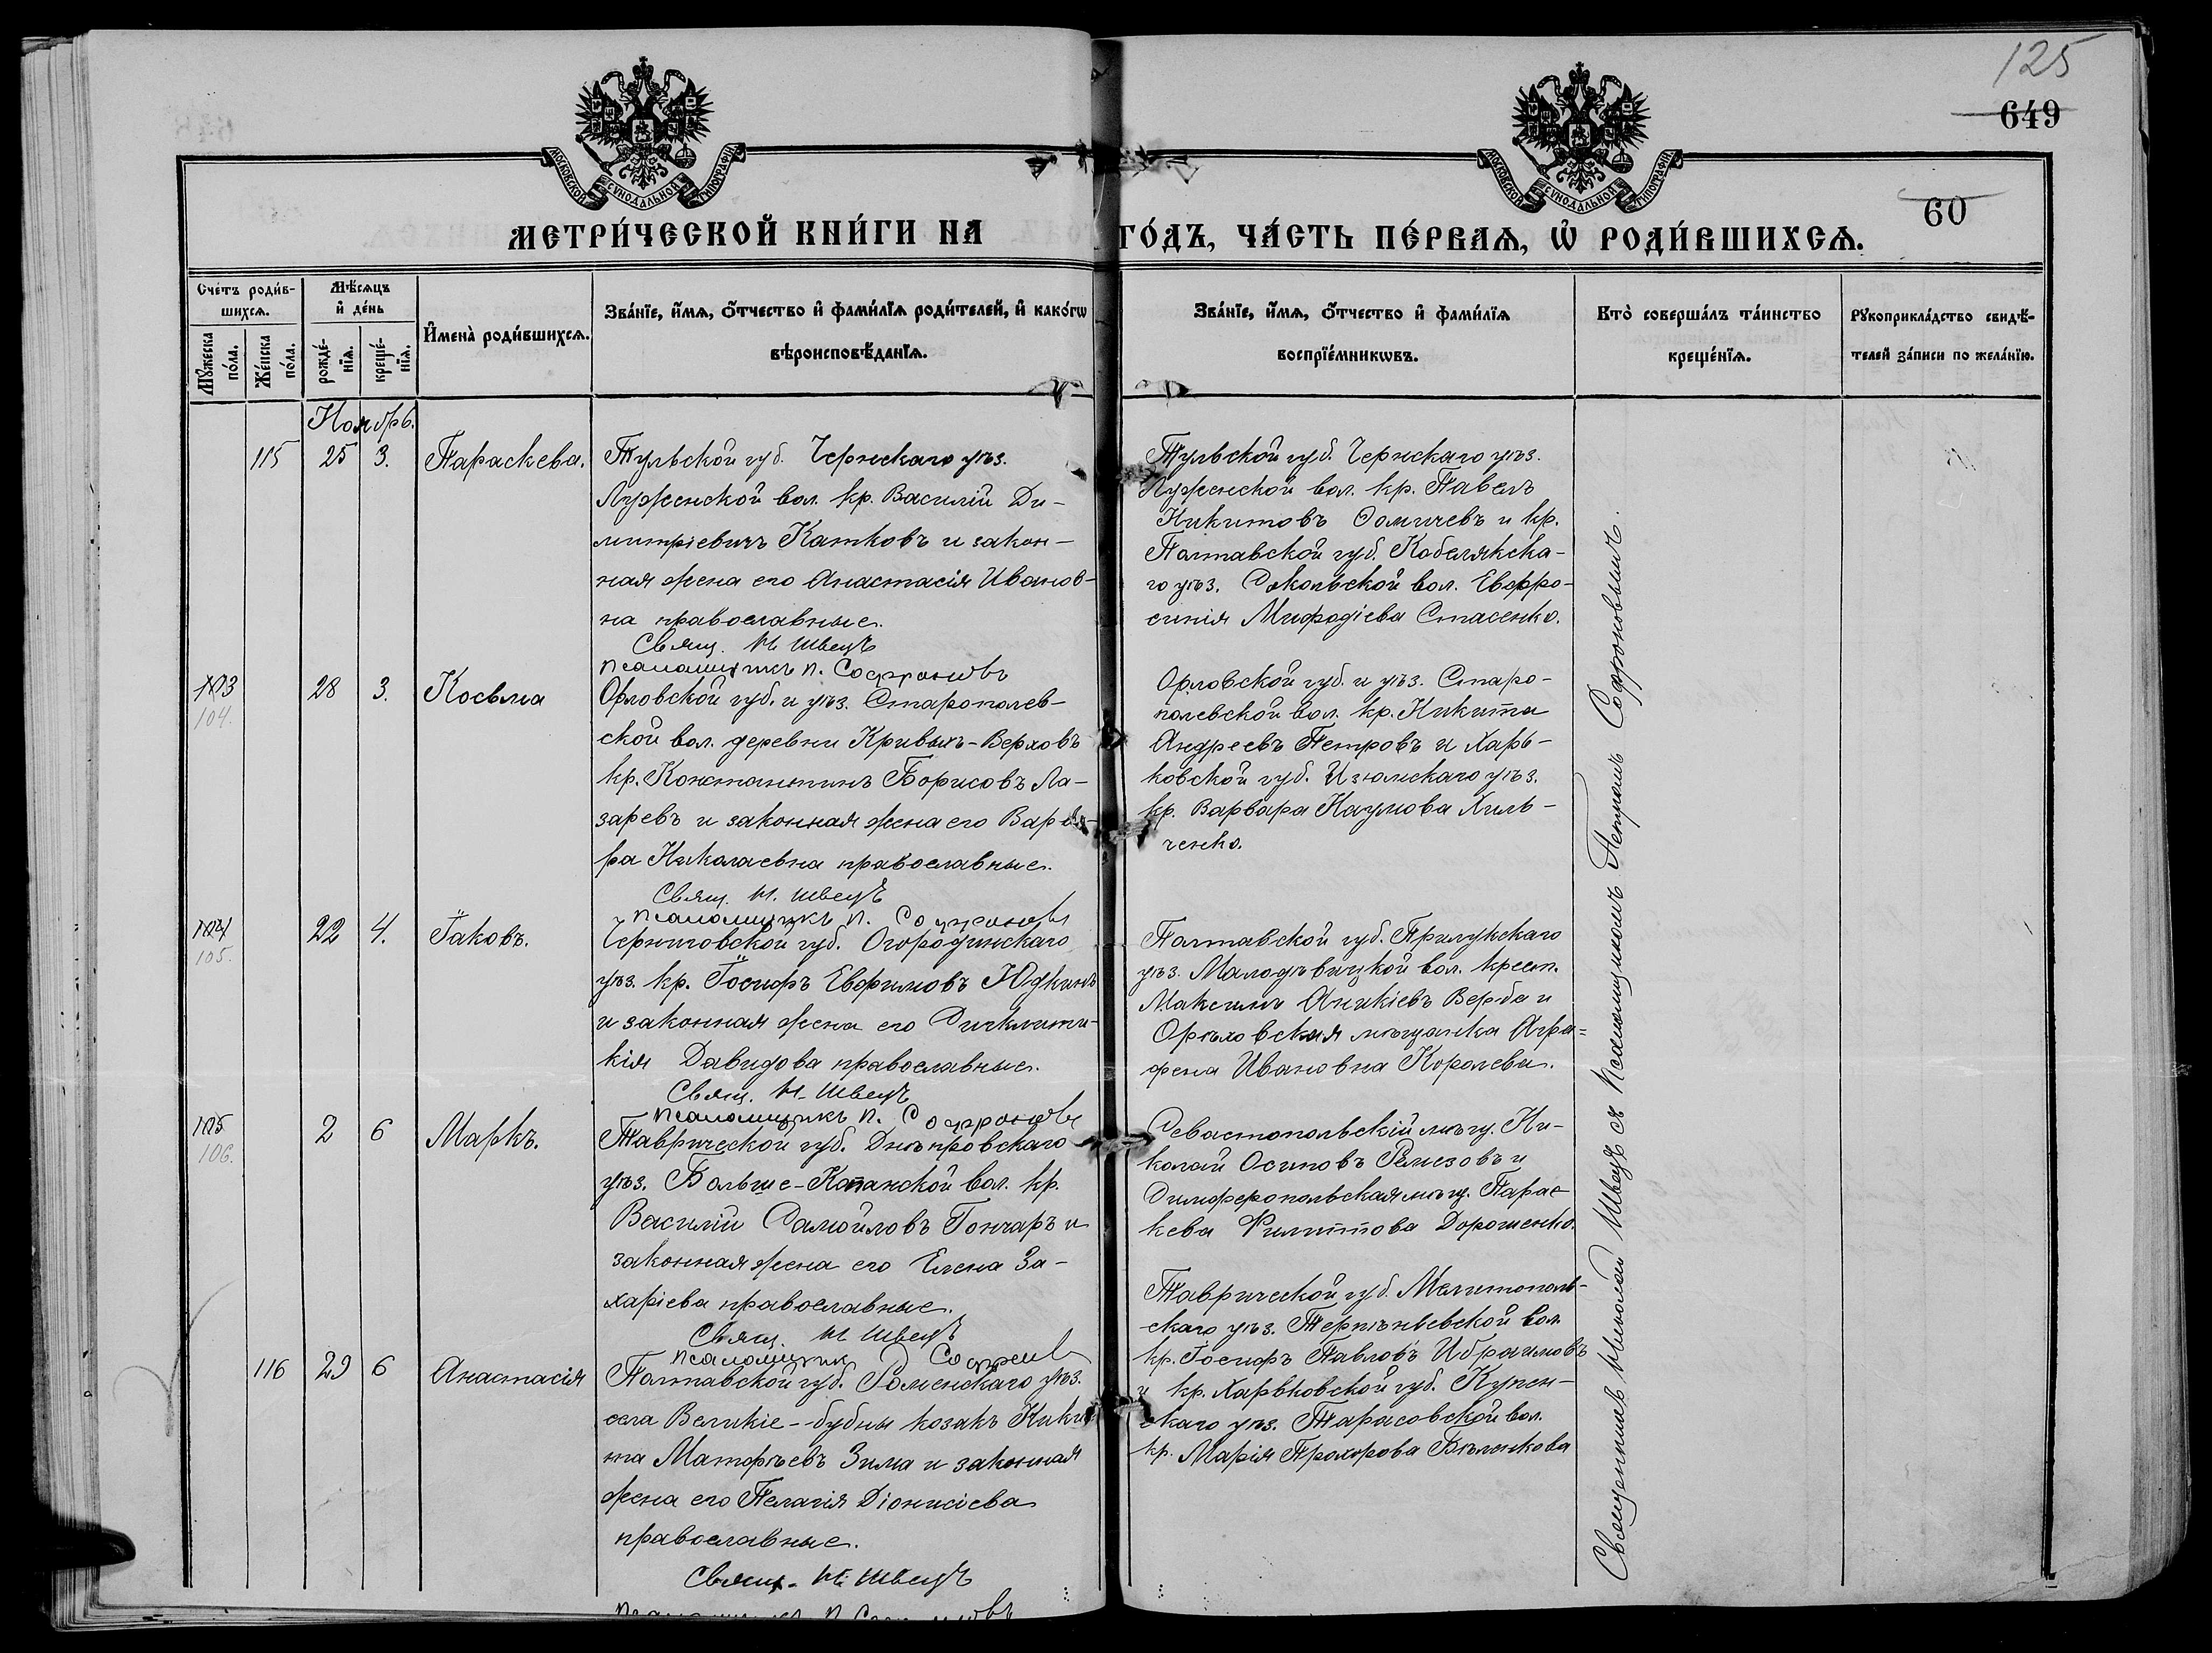 125
649
60
МОСКОВСКОЙ СУНОДАЛЬНОЙ ТИПОГРАФІИ
МОСКОВСКОЙ СУНОДАЛЬНОЙ ТИПОГРАФІИ
МЕТРИ́ЧЕСКОЙ КНИ́ГИ НА
ГО́ДЪ, ЧА́СТЬ ПЕ́РВАѦ, Ѡ҆ РОДИ́ВШИХСѦ.
Сче́тъ роди́в-
шихсѧ.
Мꙋ́жеска по́ла.
Же́нска по́ла.
Мѣ́сѧцъ
и҆ де́нь
рожде́-
нїѧ.
креще́-
нїѧ.
И҆мена̀ роди́вшихсѧ.
Зва́нїе, и҆́мѧ, ѻ҆́тчество и҆ фами́лїѧ роди́телей, и҆ како́гѡ
вѣроисповѣ́данїѧ.
Зва́нїе, и҆́мѧ, ѻ҆́тчество и҆ фами́лїѧ
воспрїе́мникѡвъ.
Кто̀ соверша́лъ та́инство
креще́нїѧ.
Рꙋкоприкла́дство свидѣ́-
телей за́писи по жела́нїю.
Ноябрь.
115 25 3. Параскева.
Тульской губ. Чернскаго уѣз.
Луженской вол. кр. Василій Ди-
митріевичъ Катковъ и закон-
ная жена его Анастасія Иванов-
на православные.
Свящ. Н. Швецъ
псаломщикъ П. Софроновъ
Тульской губ. Чернскаго уѣз.
Луженской вол. кр. Павелъ
Никитовъ Ѳомичевъ и кр.
Полтавской губ. Кобелякска-
го уѣз. Сокольской вол. Евфро-
синія Мифодіева Стасенко.
103
104.
28 3. Косьма
Орловской губ. и уѣз. Старополев-
ской вол. деревни Кривыхъ-Верховъ
кр. Константинъ Борисовъ Ла-
заревъ и законная жена его Варва-
ра Николаевна православные.
Свящ. Н. Швецъ
псаломщикъ П. Софроновъ
Орловской губ. и уѣз. Старо-
полевской вол. кр. Никита
Андреевъ Петровъ и Харь-
ковской губ. Изюмскаго уѣз.
кр. Варвара Наумова Хиль-
ченко.
104
105.
22 4. Іаковъ.
Черниговской губ. Огородинскаго
уѣз. кр. Іосифъ Евфимовъ Юдкинъ
и законная жена его Синклити-
кія Давидова православные.
Свящ. Н. Швецъ
псаломщикъ П. Софроновъ
Полтавской губ. Прилукскаго
уѣз. Малодѣвицкой вол. крест.
Максимъ Аникіевъ Верба и
Орѣховская мѣщанка Агра=
фена Ивановна Королева.
105
106.
2 6 Маркъ.
Таврической губ. Днѣпровскаго
уѣз. Больше-Копанской вол. кр.
Василій Самойловъ Гончаръ и
законная жена его Елена За-
харіева православные.
Свящ. Н. Швецъ
псаломщик Софронов
Севастопольскій мѣщ. Ни-
колай Осиповъ Ремезовъ и
Симферопольская мѣщ. Парас-
кева Филиппова Дорошенко.
116 29 6 Анастасія
Полтавской губ. Роменскаго уѣз.
села Великіе-бубны козакъ Ники-
та Матфѣевъ Зима и законная
жена его Пелагія Діонисіева
православные.
Свящ. Н. Швецъ
псаломщикъ П. Софроновъ
Таврической губ. Мелитополь-
скаго уѣз. Терпѣньевской вол.
кр. Іосифъ Павловъ Ибраимовъ
и кр. Харьковской губ. Купен-
скаго уѣз. Тарасовской вол.
кр. Марія Прохорова Бѣленкова
Священникъ Николай Швецъ съ Псаломщикомъ Петромъ Софроновымъ.